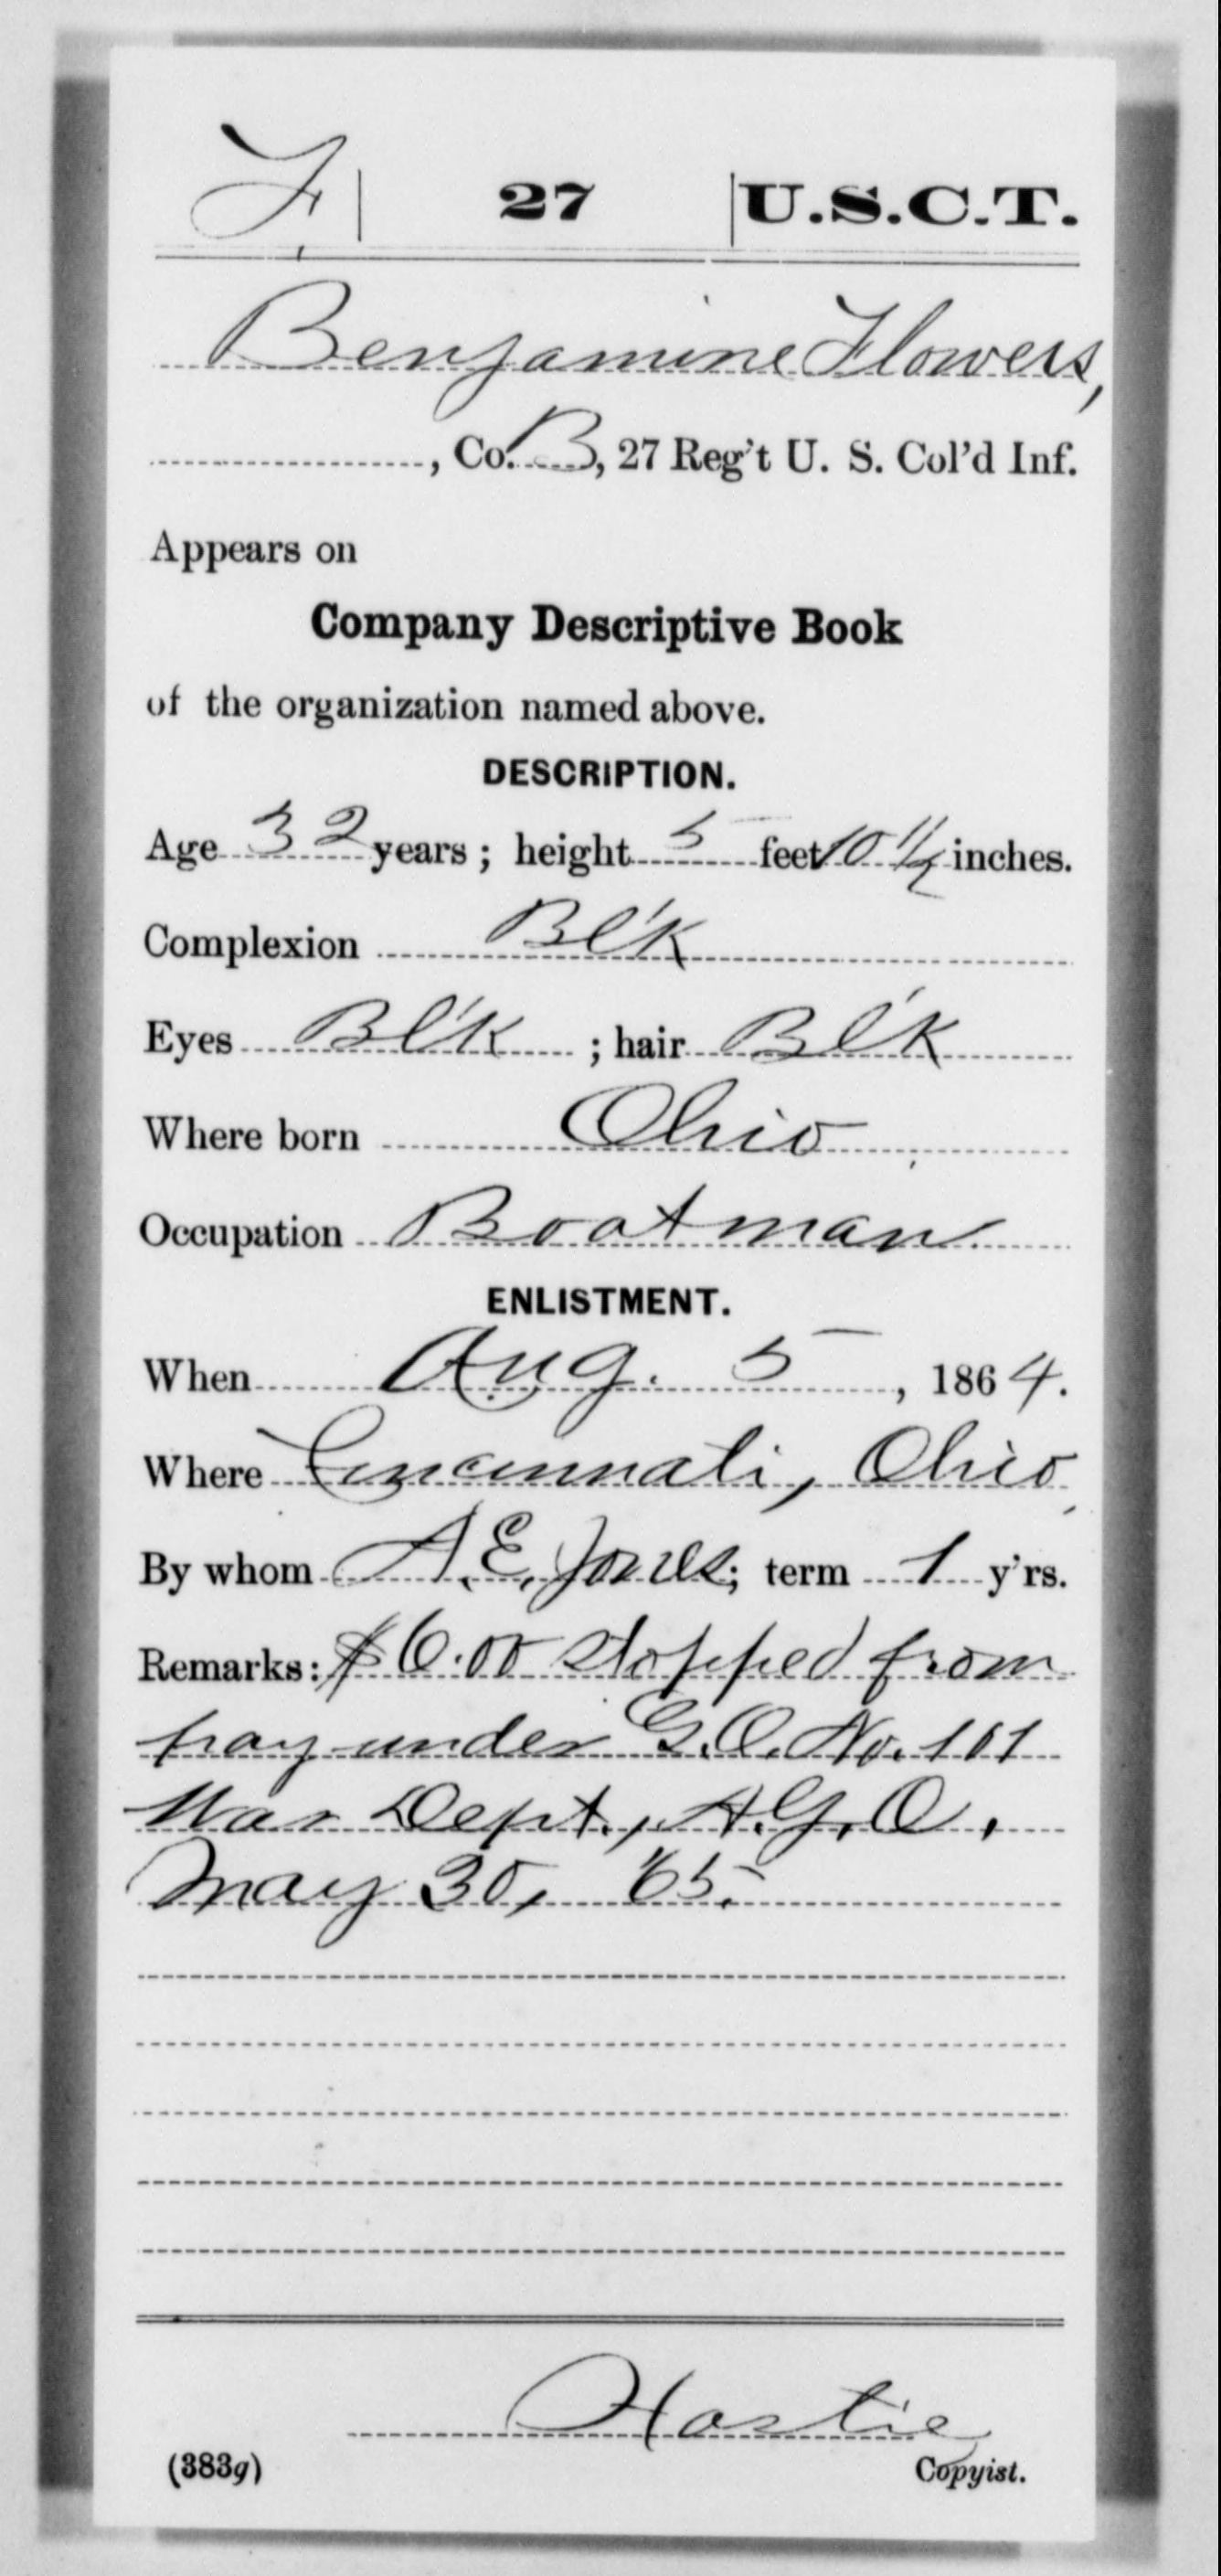 F | 27 | U.S.C.T.
Benjamine Flowers,
, Co. B, 27 Reg't U. S. Col'd Inf.
Appears on
Company Descriptive Book
of the organization named above.
DESCRIPTION.
Age 32 years; height 5 feet 10 1/2 inches.
Complexion Bl'k
Eyes Bl'k ; hair Bl'k
Where born Ohio
Occupation Boatman
ENLISTMENT.
When Aug. 5, 1864.
Where Cincinnati, Ohio
By whom A. E. Jones; term 1 y'rs.
Remarks: $6.00 stopped from
pay under G.O. No. 101
War Dept., A.G.O.,
May 30, '65.
Hastie
(383g) Copyist.